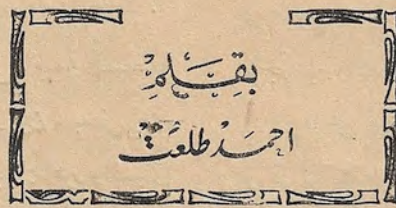 بقلم
احمد طلعت